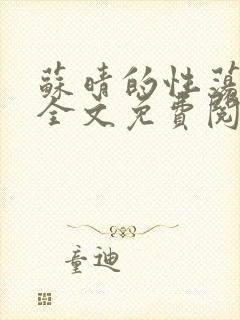 蘇晴的性蕩
全文免費閱
童迪